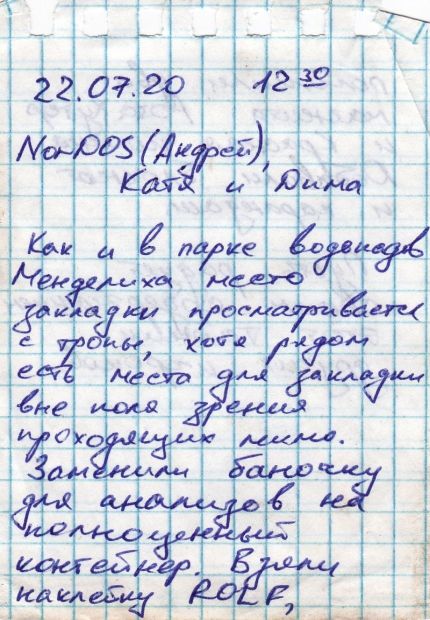 22.07.20 12 30
NonDOS (Андрей),
Катя и Дима
Как и в парке водопадов
Менделиха место
закладки просматривается
с тропы, хотя рядом
есть места для закладки
вне поля зрения
проходящих мимо.
Заменили баночку
для анализов на
полноценный
контейнер. Взяли
наклейку ROLF,